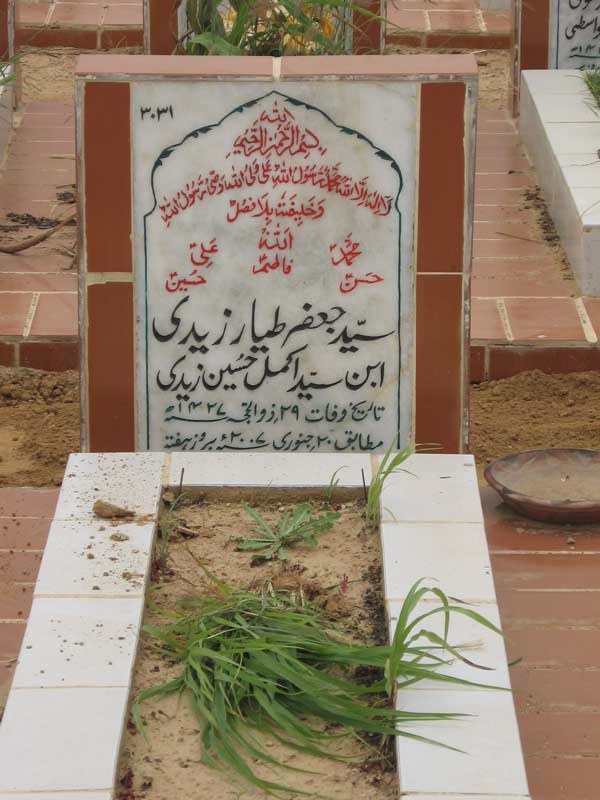 ۳۰۳۱
یا اللہ
بسم اللہ الرحمٰن الرحیم
لا الٰہ الا اللہ محمد رسول اللہ علی ولی اللہ وصی رسول اللہ
وخلیفتہ بلا فصل
محمدؐ اللہ علیؑ
حسنؑ فاطمہؑ حسینؑ
سیّد جعفر طیار زیدی
ابن سیّد اکمل حسین زیدی
تاریخ وفات ۲۹؍ ذوالحجہ ۱۴۲۷ھ
مطابق ۲۰؍ جنوری ۲۰۰۷ء بروز ہفتہ
واسطی